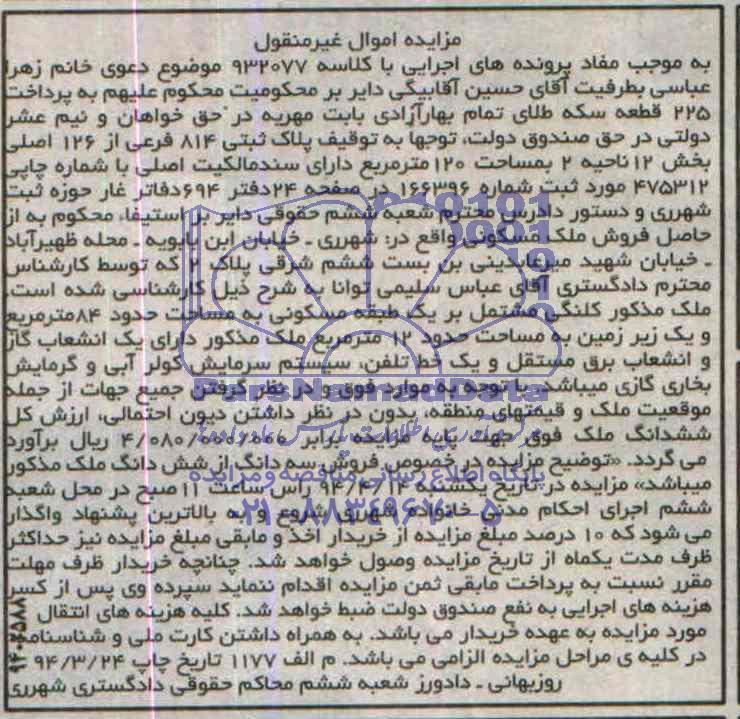 مزایده اموال غیرمنقول
به موجب مفاد پرونده های اجرایی با کلاسه ۹۳۲۰۷۷ موضوع دعوی خانم زهرا
عباسی بطرفیت آقای حسین آقابیگی دایر بر محکومیت محکوم علیهم به پرداخت
۲۲۵ قطعه سکه طلای تمام بهارآزادی بابت مهریه در حق خواهان و نیم عشر
دولتی در حق صندوق دولت، توجها به توقیف پلاک ثبتی ۸۱۴ فرعی از ۱۲۶ اصلی
بخش ۱۲ ناحیه ۲ بمساحت ۱۲۰ مترمربع دارای سندمالکیت اصلی با شماره چاپی
۴۷۵۳۱۲ مورد ثبت شماره ۱۶۶۳۹۶ در صفحه ۲۴دفتر ۶۹۴دفاتر غار حوزه ثبت
شهرری و دستور دادرس محترم شعبه ششم حقوقی دایر بر استیفاء محکوم به از
حاصل فروش ملک مسکونی واقع در: شهرری ـ خیابان ابن بابویه ـ محله ظهیرآباد
ـ خیابان شهید میرعابدینی بن بست ششم شرقی پلاک که توسط کارشناس
محترم دادگستری آقای عباس سلیمی توانا به شرح ذیل کارشناسی شده است.
ملک مذکور کلنگی مشتمل بر یک طبقه مسکونی به مساحت حدود ۸۴مترمربع
و یک زیر زمین به مساحت حدود ۱۲ مترمربع ملک مذکور دارای یک انشعاب گاز
و انشعاب برق مستقل و یک خط تلفن، سیستم سرمایش کولر آبی و گرمایش
بخاری گازی میباشد. با توجه به موارد فوق و در نظر گرفتن جمیع جهات از جمله
موقعیت ملک و قیمتهای منطقه، بدون در نظر داشتن دیون احتمالی، ارزش کل
ششدانگ ملک فوق جهت پایه مزایده برابر ۴/۰۸۰/۰۰۰/۰۰۰ ریال برآورد
می گردد. «توضیح مزایده در خصوص فروش سه دانگ از شش دانگ ملک مذکور
میباشد» مزایده در تاریخ یکشنبه ۹۴/۴/۱۴ راس ساعت ۱۱ صبح در محل شعبه
ششم اجرای احکام مدنی خانواده شهرری شروع و به بالاترین پیشنهاد واگذار
می شود که ۱۰ درصد مبلغ مزایده از خریدار اخذ و مابقی مبلغ مزایده نیز حداکثر
ظرف مدت یکماه از تاریخ مزایده وصول خواهد شد. چنانچه خریدار ظرف مهلت
مقرر نسبت به پرداخت مابقی ثمن مزایده اقدام ننماید سپرده وی پس از کسر
هزینه های اجرایی به نفع صندوق دولت ضبط خواهد شد. کلیه هزینه های انتقال
مورد مزایده به عهده خریدار می باشد. به همراه داشتن کارت ملی و شناسنامه
در کلیه ی مراحل مزایده الزامی می باشد. م الف ۱۱۷۷ تاریخ چاپ ۹۴/۳/۲۴
روزبهانی ـ دادورز شعبه ششم محاکم حقوقی دادگستری شهرری
ParsNamadData
پایگاه اطلاع رسانی مناقصه و مزایده
۰۲۱-۸۸۳۴۹۶۷۰-۵